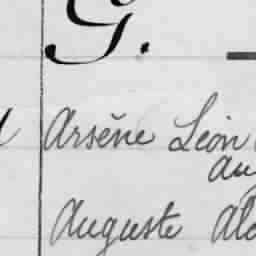 G.
Arsène Léon
Au
Auguste Al